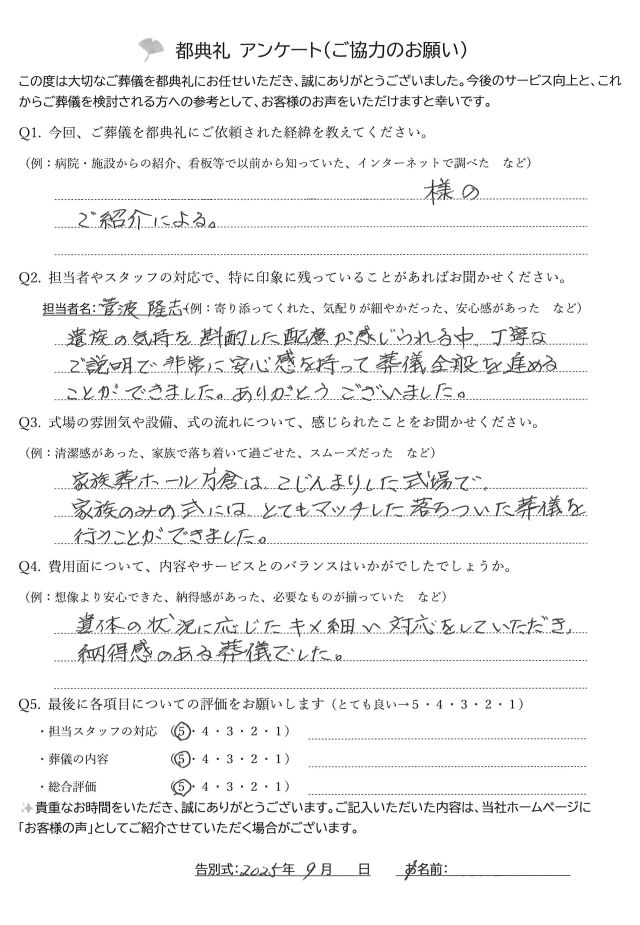 都典礼 アンケート(ご協力のお願い)
この度は大切なご葬儀を都典礼にお任せいただき、誠にありがとうございました。今後のサービス向上と、これ
からご葬儀を検討される方への参考として、お客様のお声をいただけますと幸いです。
Q1. 今回、ご葬儀を都典礼にご依頼された経緯を教えてください。
（例：病院・施設からの紹介、看板等で以前から知っていた、インターネットで調べた　など）
様の
ご紹介による。
Q2. 担当者やスタッフの対応で、特に印象に残っていることがあればお聞かせください。
担当者名：菅波 隆志（例：寄り添ってくれた、気配りが細やかだった、安心感があった　など）
遺族の気持を斟酌した配慮が感じられる中、丁寧な
ご説明で非常に安心感を持って葬儀全般を進める
ことができました。ありがとうございました。
Q3. 式場の雰囲気や設備、式の流れについて、感じられたことをお聞かせください。
（例：清潔感があった、家族で落ち着いて過ごせた、スムーズだった　など）
家族葬ホール方倉は、こじんまりした式場で、
家族のみの式には とてもマッチした落ちついた葬儀を
行うことができました。
Q4. 費用面について、内容やサービスとのバランスはいかがでしたでしょうか。
（例：想像より安心できた、納得感があった、必要なものが揃っていた　など）
遺体の状況に応じたキメ細い対応をしていただき、
納得感のある葬儀でした。
Q5. 最後に各項目についての評価をお願いします（とても良い→５・４・３・２・１）
・担当スタッフの対応　（５・４・３・２・１）
・葬儀の内容　（５・４・３・２・１）
・総合評価　（５・４・３・２・１）
✨貴重なお時間をいただき、誠にありがとうございます。ご記入いただいた内容は、当社ホームページに
「お客様の声」としてご紹介させていただく場合がございます。
告別式：2025年 9月　日　お名前：